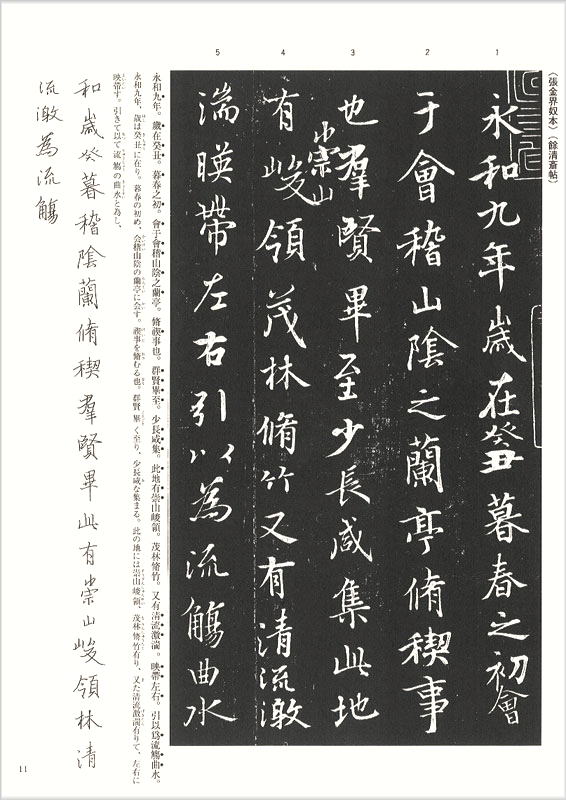 〈張金界奴本〉〈餘清斎帖〉
1
2
3
4
5
永和九年歳在癸丑暮春之初會
于會稽山陰之蘭亭脩稧事
也羣賢畢至少長咸集此地
有崇山峻領茂林脩竹又有清流激
湍暎帶左右引以為流觴曲水
永和九年。歳在癸丑。暮春之初。會于會稽山陰之蘭亭。脩禊事也。群賢畢至。少長咸集。此地有崇山峻領。茂林脩竹。又有清流激湍。映帶左右。引以爲流觴曲水。
永和九年、歳は癸丑に在り。暮春の初め、会稽山陰の蘭亭に会す。禊事を脩むる也。群賢 畢く至り、少長咸な集まる。此の地には崇山峻領、茂林脩竹有り、又た清流激湍有りて、左右に
映帯す。引きて以て流觴の曲水と為し、
和歳癸暮稽陰蘭脩稧羣賢畢此有崇山峻領林清
流激為流觴
11